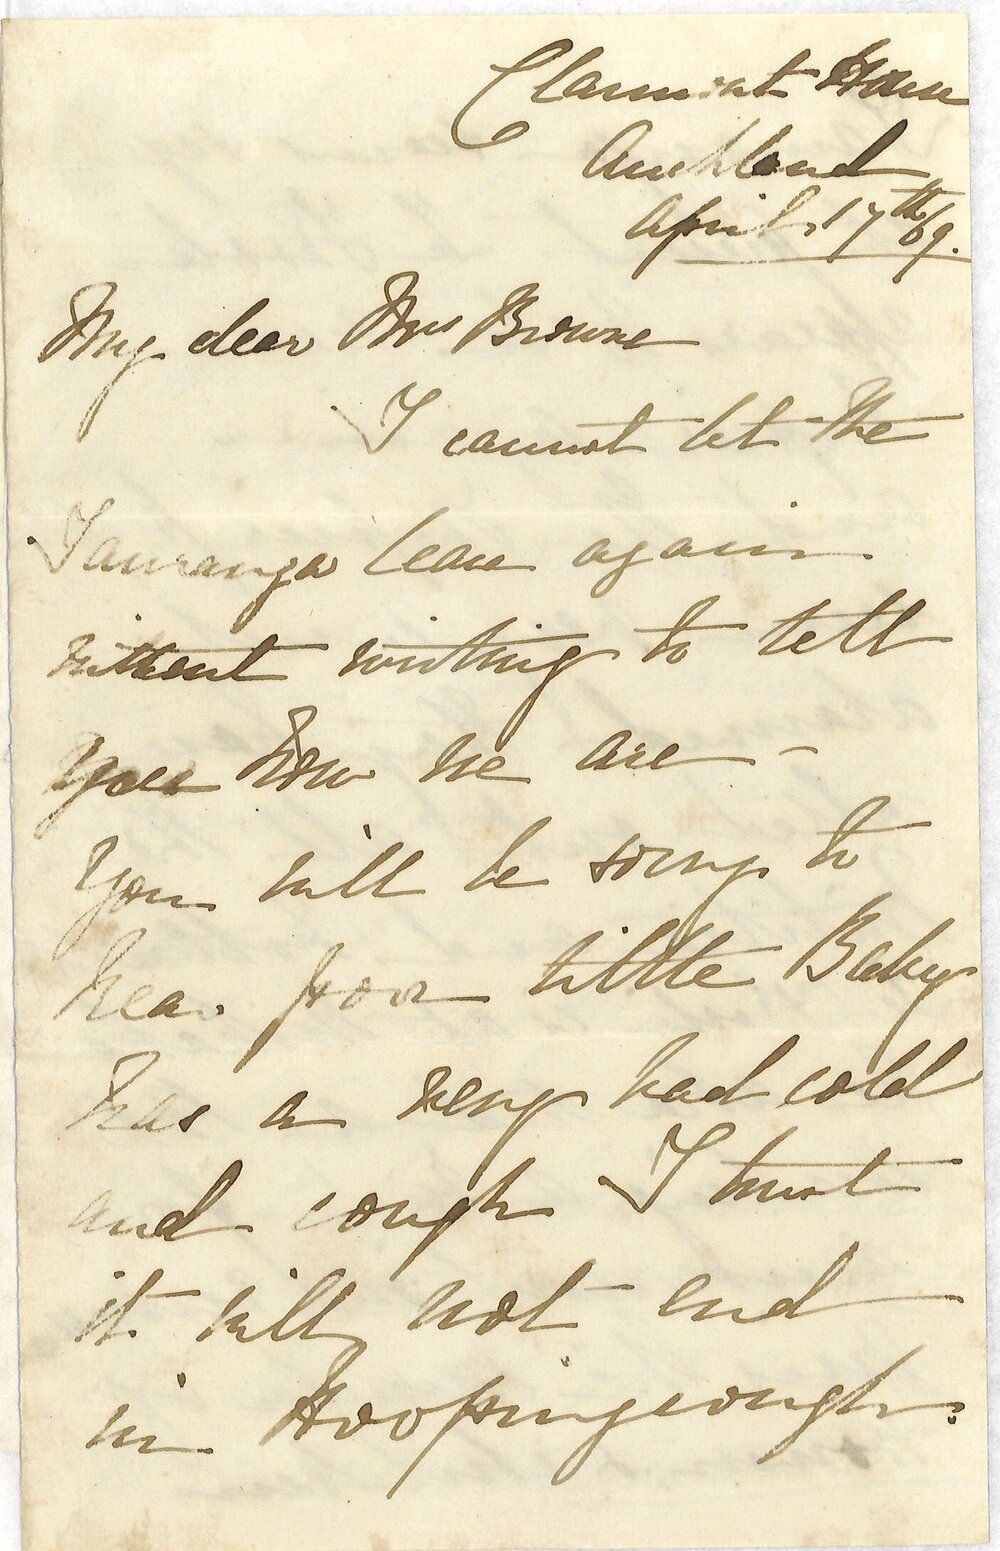 Claremont House
Auckland
April 17th 69.
My dear Mrs Browne
I cannot let the
Tauranga leave again
without writing to tell
you how we are -
You will be sorry to
hear poor little Baby
has a very bad cold
and cough I trust
it will not end
in Hoopingcough.